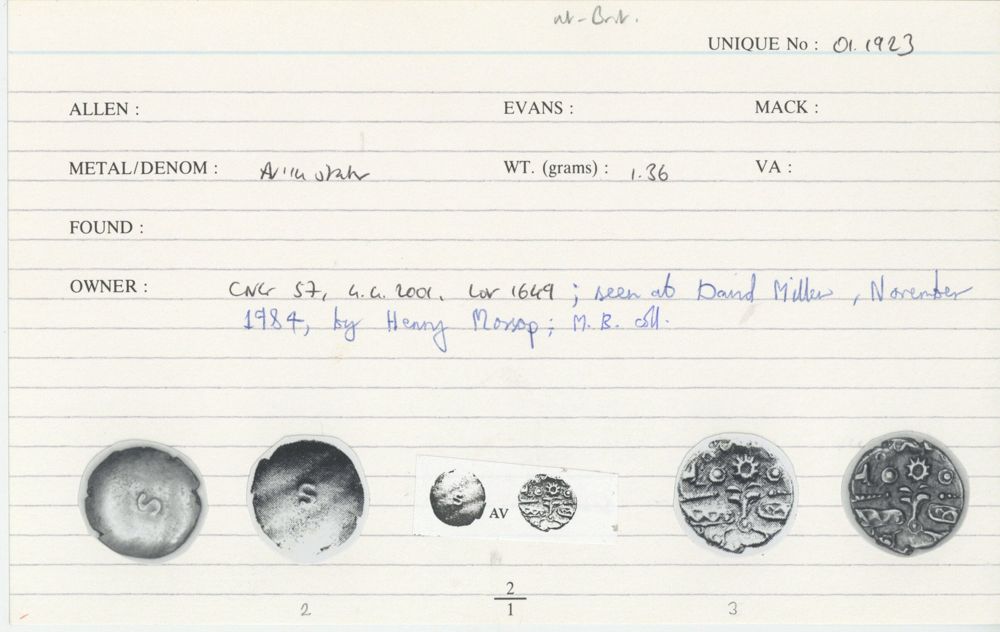 UNIQUE No : 01.1923
ALLEN : EVANS : MACK :
METAL/DENOM : WT. (grams) : 1.36 VA :
FOUND :
OWNER : CNG 57, 4.4.2001, Lot 1649 ; seen at David Miller, November
1984, by Henry Mossop; M. B. coll.
S S AV
2
2 1 3